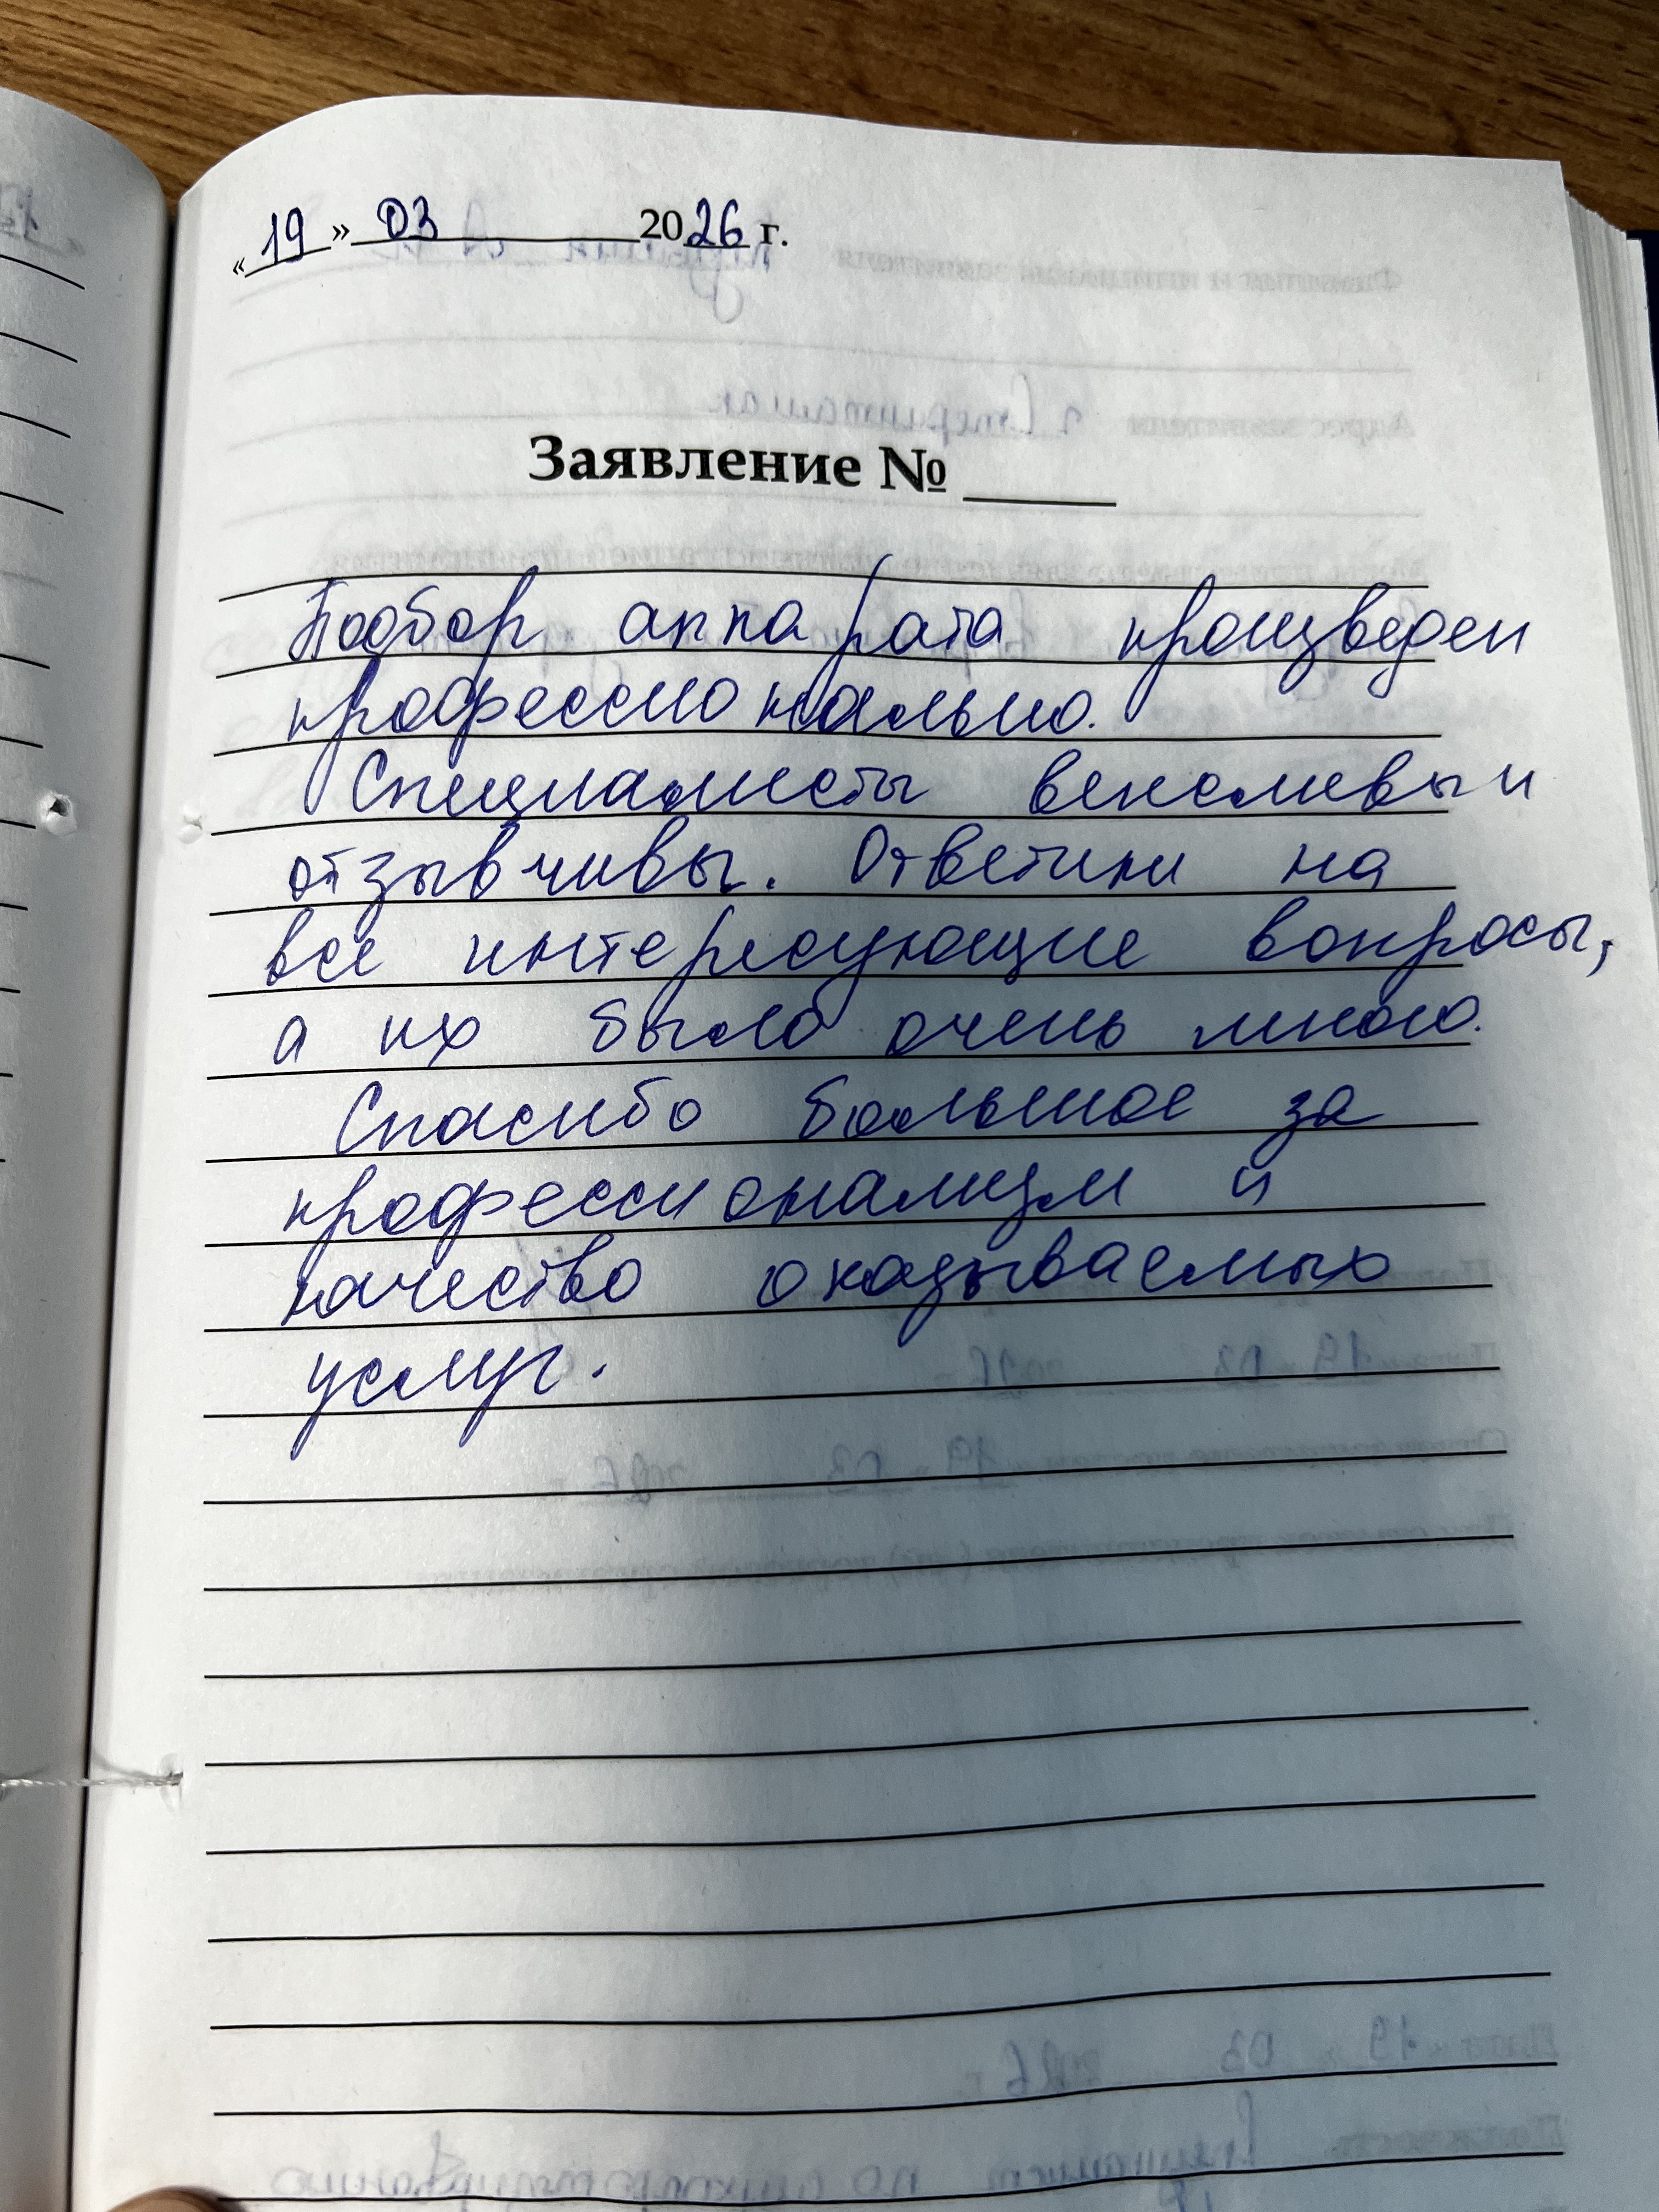 «19» 03 2026 г.
Заявление №
Подбор аппарата произведен
профессионально.
Специалисты вежливы и
отзывчивы. Ответили на
все интересующие вопросы,
а их было очень много.
Спасибо большое за
профессионализм и
качество оказываемых
услуг.